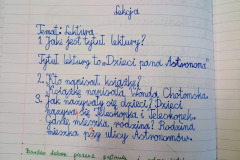 Lekcja
Temat: Lektura
1. Jaki jest tytuł lektury?
Tytuł lektury to „Dzieci pana Astronona"
2. Kto napisał książkę?
Książkę napisała Wanda Chotomska.
3. Jak nazywały się dzieci? Dzieci
nazywa się Teleskopka i Teleskopek.
Gdzie mieszka rodzina? Rodzina
mieszka przy ulicy Astronomów.
Bardzo ładne pismo